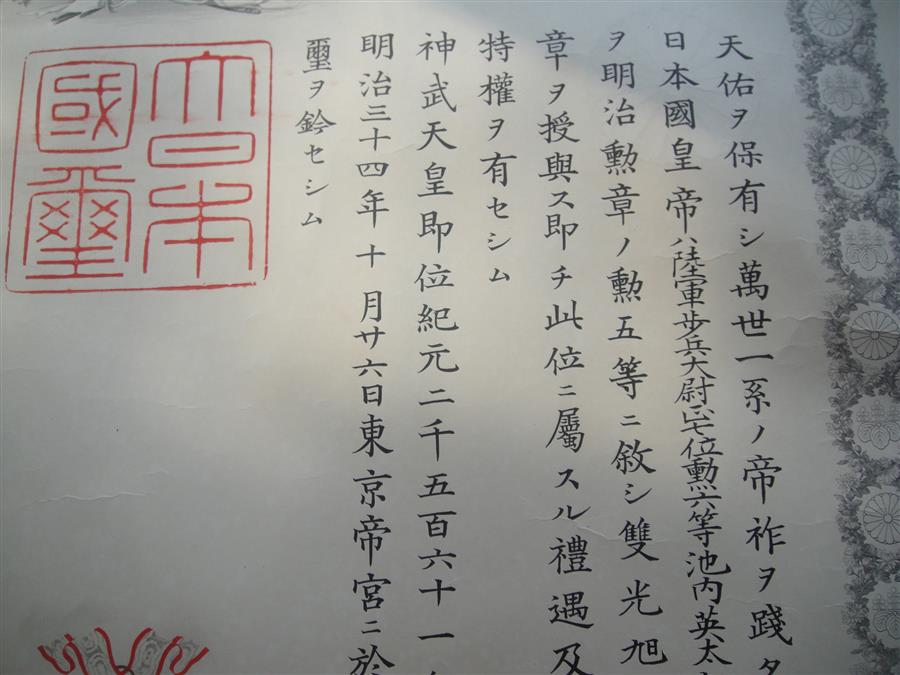 天佑ヲ保有シ萬世一系ノ帝祚ヲ踐タ
日本國皇帝ハ陸軍歩兵大尉正七位勲六等池内英太
ヲ明治勲章ノ勲五等ニ敘シ雙光旭
章ヲ授與ス即チ此位ニ屬スル禮遇及
特權ヲ有セシム
神武天皇即位紀元二千五百六十一
明治三十四年十月廿六日東京帝宮ニ於
璽ヲ鈐セシム
大日本
國璽